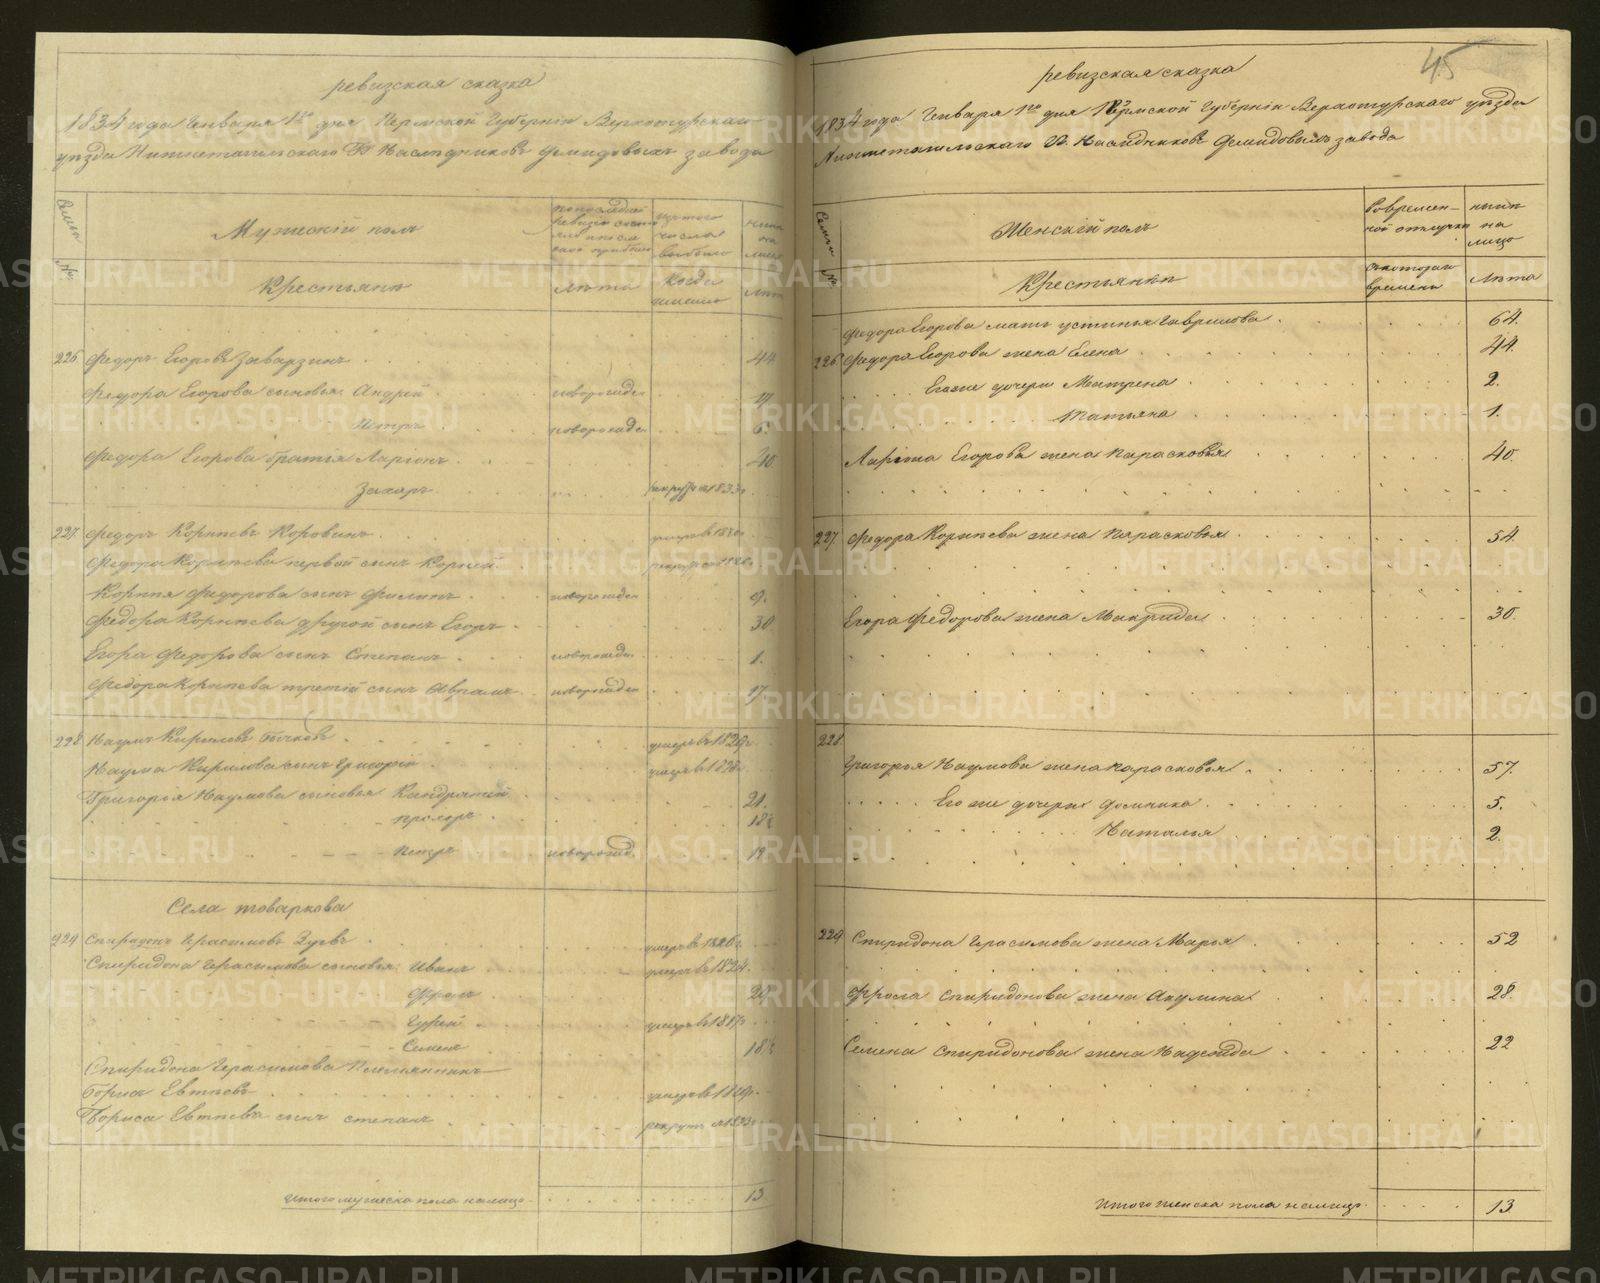 ревизская сказка
1834 года Генваря 1го дня Пермской Губернiи Верхотурскаго
уѣзда Нижнетагильскаго Гг. Наследниковъ Демидовыхъ завода
Семьи №
Мужскiй полъ
Крестьянѣ
лѣта
когда имянно
лѣта
226 Федоръ Егоровъ Заварзинъ 44
Федора Егорова сыновья Андрей новорожден 17
Петръ новорожден 6.
Федора Егорова братiя Ларiонъ 40
Захаръ рекрут в 1833г
227 Федоръ Корнѣевъ Коровинъ
Федора Корнѣева первой сынъ Корней
Корнѣя Федорова сынъ Филипъ новорожден 9.
Федора Корнѣева другой сынъ Егоръ 30
Егора Федорова сынъ Степанъ новорожден 1.
Федора Корнѣева третiй сынъ Аврамъ новорожден 17
228 Наумъ Кириловъ Бычковъ умеръ в 1829г
Наума Кирилова сынъ Григорiй
Григорья Наумова сыновья Кандратей 21.
Прохоръ 18½
Петръ новорожд. 19
Села товаркова
229 Спиридонъ Герасимовъ Зуевъ умеръ в 1826г
Спиридона Герасимова сыновья Иванъ умеръ в 1824
Фролъ 29
Гурей умеръ в 1817г
Семенъ 18½
Спиридона Герасимова Племянникъ
Борисъ Евтѣевъ
Бориса Евтѣева сынъ степанъ рекрутъ в 1833г
Итого мужеска пола налицо 13
45
ревизская сказка
1834 года Генваря 1го дня Пермской Губернiи Верхотурскаго уѣзда
Нижнетагильскаго Гг. Наследниковъ Демидовыхъ завода
Семьи №
Женскiй полъ
Во времен-
ной отлучке
нынѣ
на
лицо
Крестьянѣ
съ котораго
времени
Лѣта
Федора Егорова мать устинья Гаврилова 64.
226 Федора Егорова жена Елена 44.
Егоже дочери Матрена 2.
Татьяна 1.
Ларiона Егорова жена Парасковья 40.
227. Федора Корнѣева жена Парасковья 54.
Егора Федорова жена Макрида 30.
228
Григорья Наумова жена Парасковья 57.
Его же дочери Домника 5.
Наталья 2.
229 Спиридона Герасимова жена Марья 52
Фрола Спиридонова жена Акулина 28.
Семена Спиридонова жена Надежда 22
Итого женска пола налицо 13
METRIKI.GASO-URAL.RU